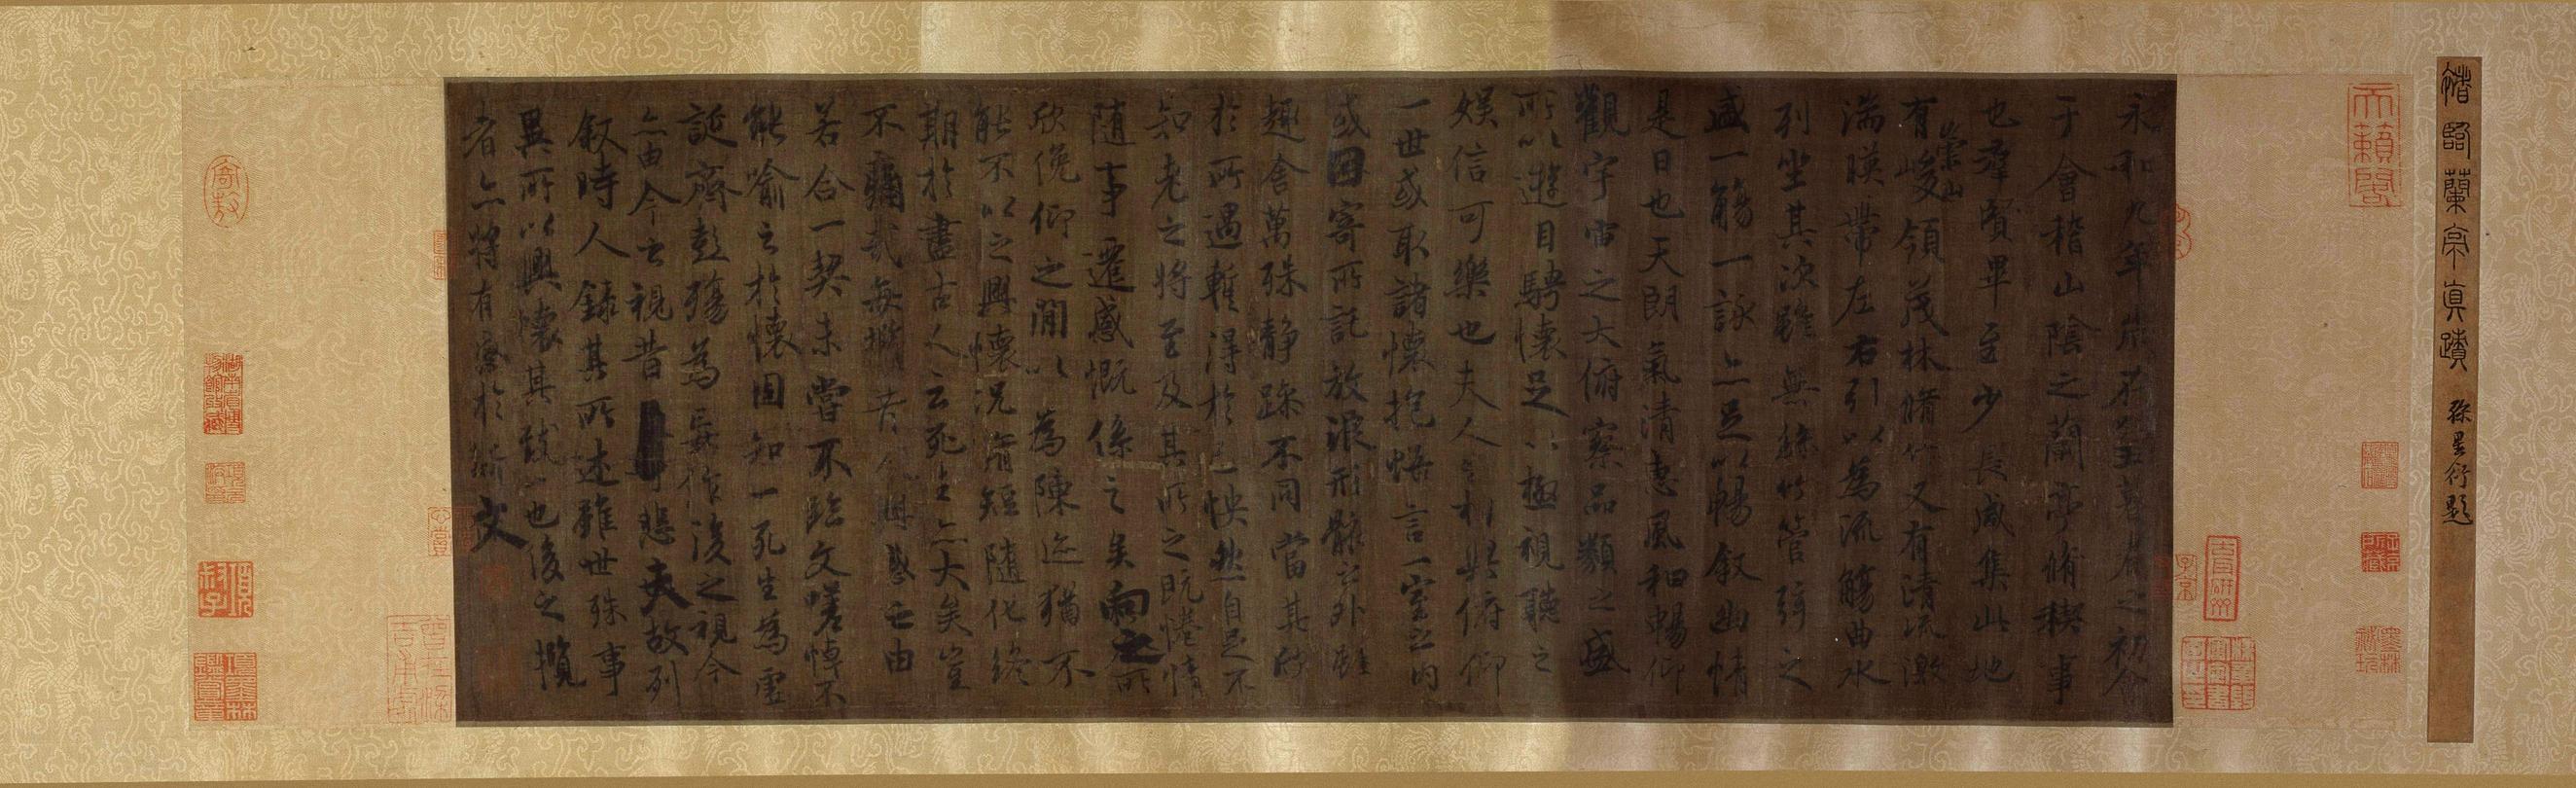 褚臨蘭亭真蹟 孫星衍題
天籟閣
墨林秘玩
子京
永和九年歲在癸丑暮春之初會
于會稽山陰之蘭亭脩稧事
也羣賢畢至少長咸集此地
有崇山峻領茂林脩竹又有清流激
湍暎帶左右引以為流觴曲水
列坐其次雖無絲竹管弦之
盛一觴一詠亦足以暢叙幽情
是日也天朗氣清惠風和暢仰
觀宇宙之大俯察品類之盛
所以遊目騁懷足以極視聽之
娛信可樂也夫人之相與俯仰
一世或取諸懷抱悟言一室之內
或因寄所託放浪形骸之外雖
趣舍萬殊靜躁不同當其欣
於所遇暫得於己怏然自足不
知老之將至及其所之既惓情
隨事遷感慨係之矣向之所
欣俛仰之閒以為陳迹猶不
能不以之興懷況脩短隨化終
期於盡古人云死生亦大矣豈
不痛哉每攬昔人興感之由
若合一契未嘗不臨文嗟悼不
能喻之於懷固知一死生為虛
誕齊彭殤為妄作後之視今
亦由今之視昔悲夫故列
叙時人錄其所述雖世殊事
異所以興懷其致一也後之攬
者亦將有感於斯文
湖南省博物館收藏
項叔子
項墨林鑑賞章